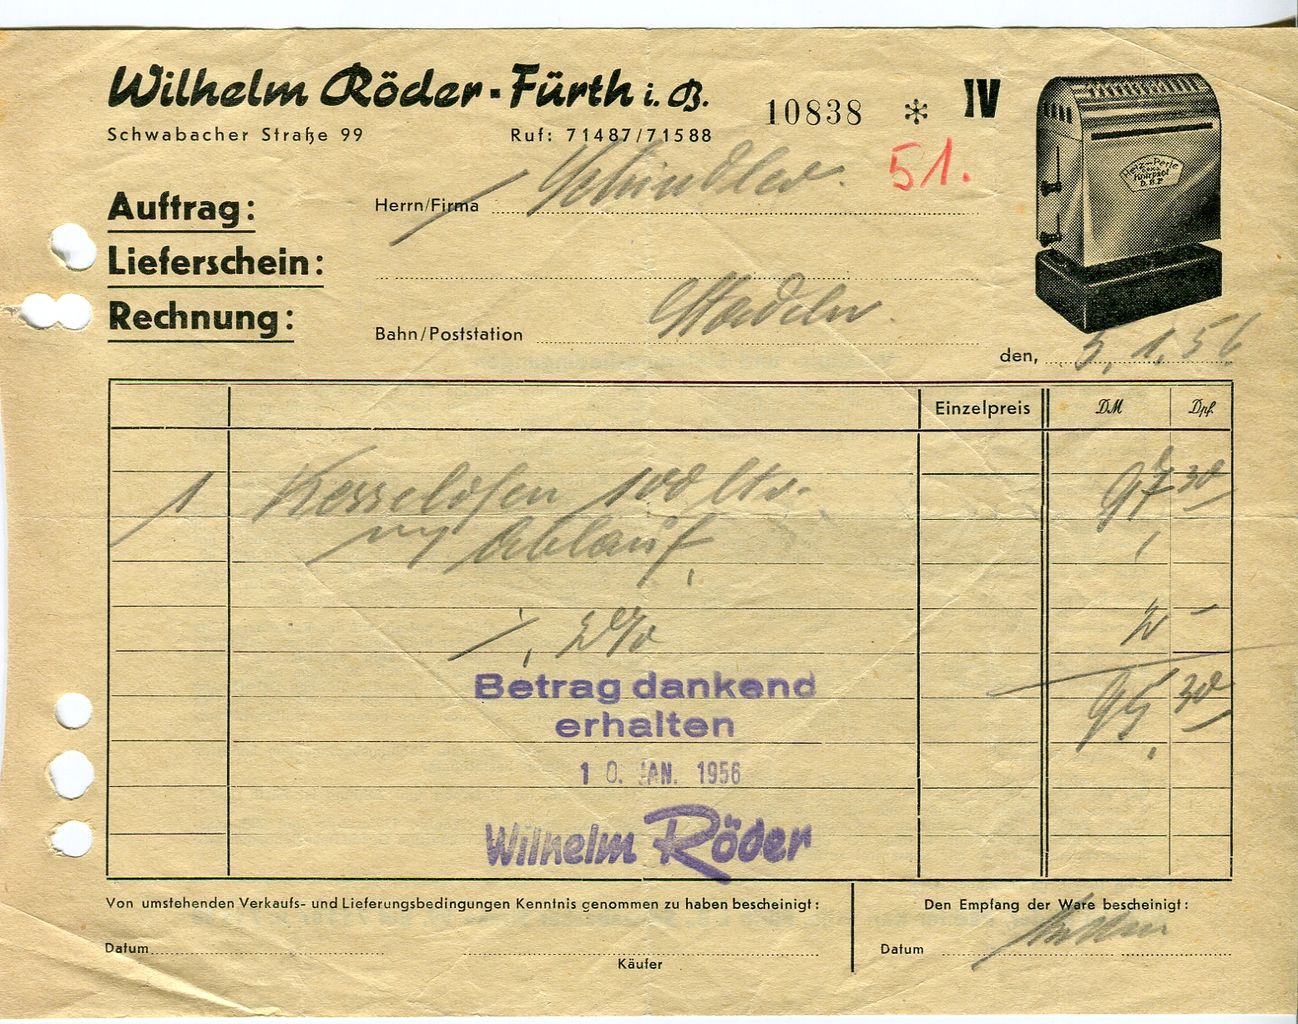 Wilhelm Röder - Fürth i. B.
Schwabacher Straße 99 Ruf: 71487/71588
10838 * IV
51.
Heiz-Perle
Knirps01
D.B.P.
Auftrag:
Herrn/Firma Schindler.
Lieferschein:
Rechnung:
Bahn/Poststation Stadeln.
den, 5.1.56
Einzelpreis DM Dpf.
1 Kesselofen 100 ltr. 97 30
m/ Ablauf
2% 2 —
95 30
Betrag dankend
erhalten
10. JAN. 1956
Wilhelm Röder
Von umstehenden Verkaufs- und Lieferungsbedingungen Kenntnis genommen zu haben bescheinigt:
Den Empfang der Ware bescheinigt:
Datum
Käufer
Datum